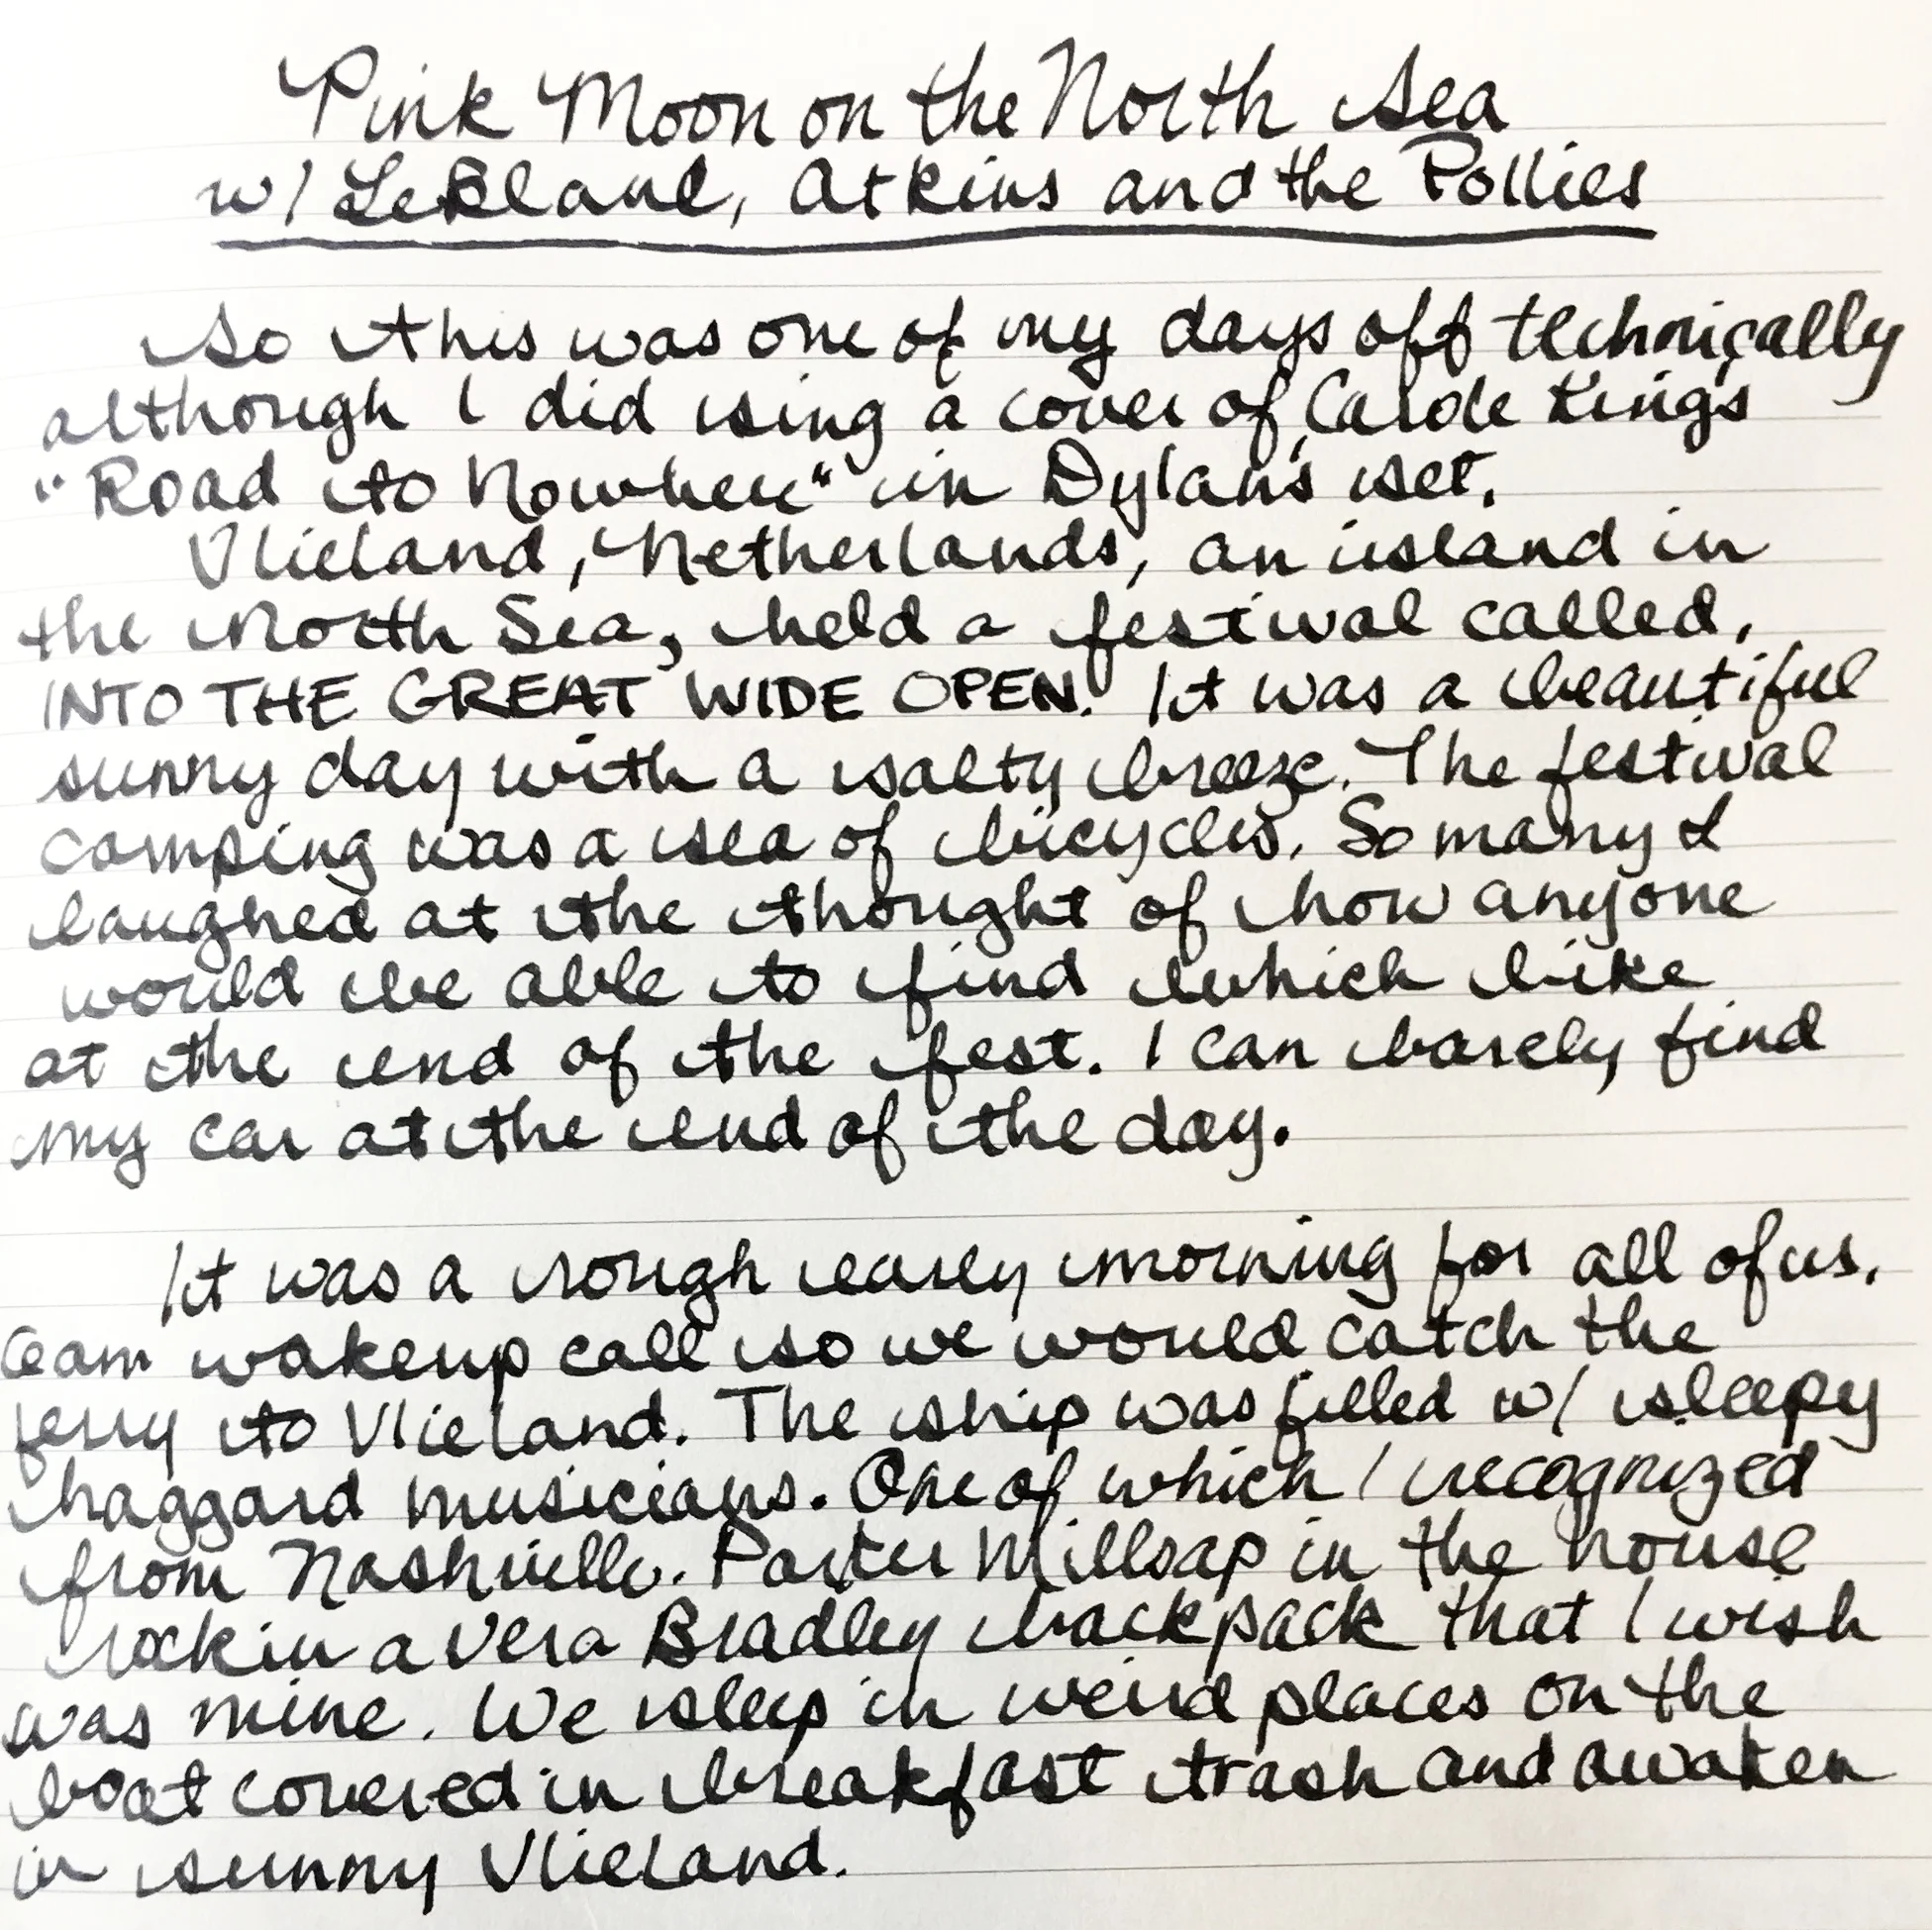 Pink Moon on the North Sea
w/ LeBlanc, Atkins and the Pollies
So this was one of my days off technically
although I did sing a cover of Carole King's
"Road to Nowhere" in Dylan's set.
Vlieland, Netherlands, an island in
the North Sea, held a festival called,
INTO THE GREAT WIDE OPEN. It was a beautiful
sunny day with a salty breeze. The festival
camping was a sea of bicycles. So many I
laughed at the thought of how anyone
would be able to find which bike
at the end of the fest. I can barely find
my car at the end of the day.
It was a rough early morning for all of us.
6am wakeup call so we would catch the
ferry to Vlieland. The ship was filled w/ sleepy
haggard musicians. One of which I recognized
from Nashville. Parker Millsap in the house
rockin a Vera Bradley backpack that I wish
was mine. We sleep in weird places on the
boat covered in breakfast trash and awaken
in sunny Vlieland.